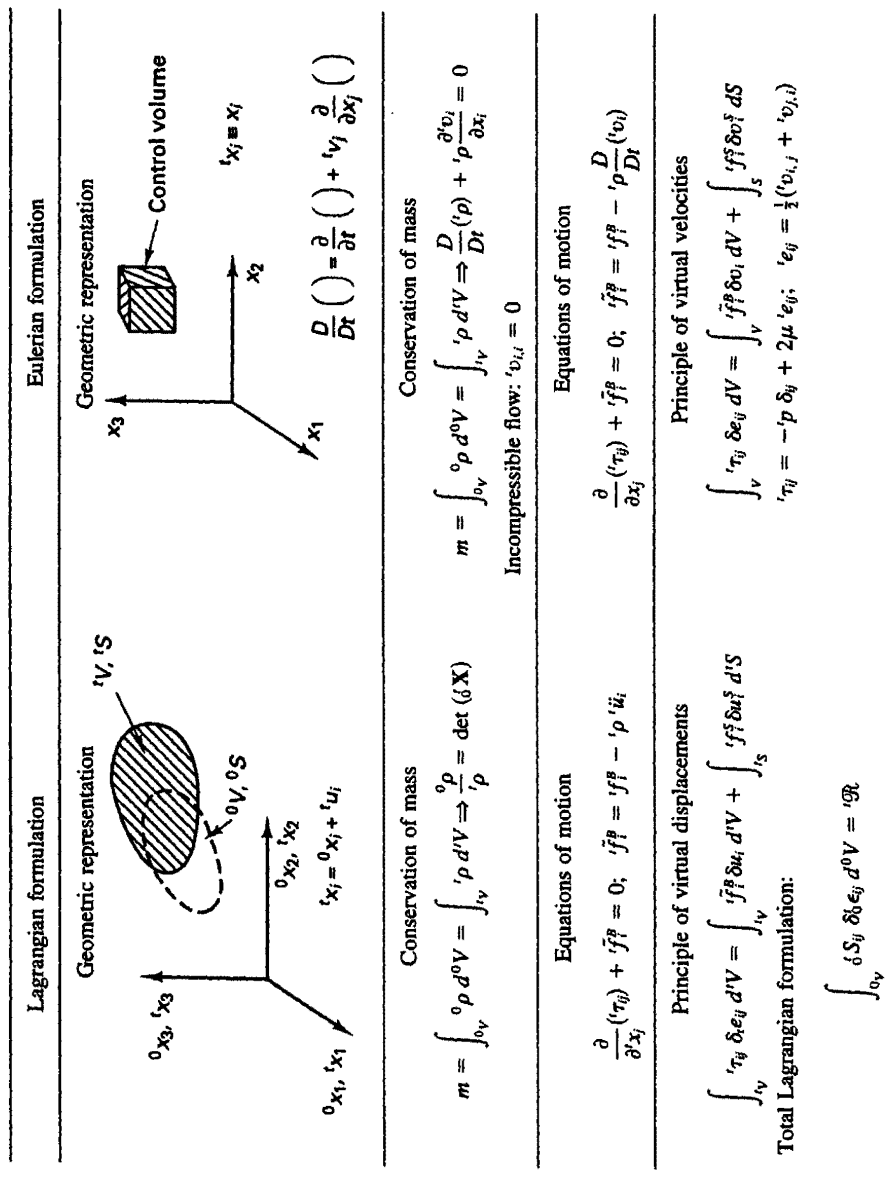 Lagrangian formulation
Eulerian formulation
Geometric representation
⁰x₃, ᵗx₃
ᵗV, ᵗS
⁰V, ⁰S
⁰x₂, ᵗx₂
⁰x₁, ᵗx₁
ᵗxᵢ = ⁰xᵢ + ᵗuᵢ
Geometric representation
x₃
Control volume
x₂
x₁
ᵗxᵢ ≡ xᵢ
D/Dt ( ) = ∂/∂t ( ) + ᵗvⱼ ∂/∂xⱼ ( )
Conservation of mass
m = ∫_{⁰V} ⁰ρ d⁰V = ∫_{ᵗV} ᵗρ dᵗV ⇒ ⁰ρ/ᵗρ = det (ᵗ₀X)
Conservation of mass
m = ∫_{⁰V} ⁰ρ d⁰V = ∫_{ᵗV} ᵗρ dᵗV ⇒ D/Dt (ᵗρ) + ᵗρ ∂ᵗvᵢ/∂xᵢ = 0
Incompressible flow: ᵗv_{i,i} = 0
Equations of motion
∂/∂ᵗxⱼ (ᵗτᵢⱼ) + ᵗf̃ᵢᴮ = 0; ᵗf̃ᵢᴮ = ᵗfᵢᴮ − ᵗρ ᵗüᵢ
Equations of motion
∂/∂xⱼ (ᵗτᵢⱼ) + ᵗf̃ᵢᴮ = 0; ᵗf̃ᵢᴮ = ᵗfᵢᴮ − ᵗρ D/Dt (ᵗvᵢ)
Principle of virtual displacements
∫_{ᵗV} ᵗτᵢⱼ δₜeᵢⱼ dᵗV = ∫_{ᵗV} ᵗf̃ᵢᴮ δuᵢ dᵗV + ∫_{ᵗS} ᵗfᵢˢ δuᵢˢ dᵗS
Total Lagrangian formulation:
∫_{⁰V} ᵗ₀Sᵢⱼ δᵗ₀εᵢⱼ d⁰V = ᵗℛ
Principle of virtual velocities
∫_V ᵗτᵢⱼ δeᵢⱼ dV = ∫_V ᵗf̃ᵢᴮ δvᵢ dV + ∫_S ᵗfᵢˢ δvᵢˢ dS
ᵗτᵢⱼ = −ᵗp δᵢⱼ + 2μ ᵗeᵢⱼ; ᵗeᵢⱼ = ½(ᵗv_{i,j} + ᵗv_{j,i})